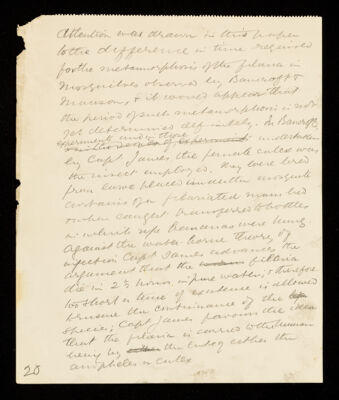 Attention was drawn in this paper
to the difference in time required
for the metamorphosis of the filaria in
mosquitoes observed by Bancroft &
Manson, & it would appear that
the period of such metamorphosis is not
yet determined definitely. In Bancroft's
experiments and in those undertaken
by Capt. James, the female culex was
the insect employed. They were bred
from larvae placed under the mosquito
curtains of a filariated man bed
or when caught transferred to bottles
in which ripe bananas were hung.
Against the water-borne theory of
infection Capt James advances the
argument that the filaria
die in 2½ hours in pure water, & therefore
too short a time of existence is allowed
to ensure the continuance of the
species; Capt James favours the idea
that the filaria is carried to the human
being by the bite of either the
anopheles or culex
20